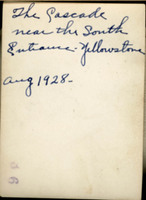 The Cascade
near the South
Entrance - Yellowstone
Aug 1928 -